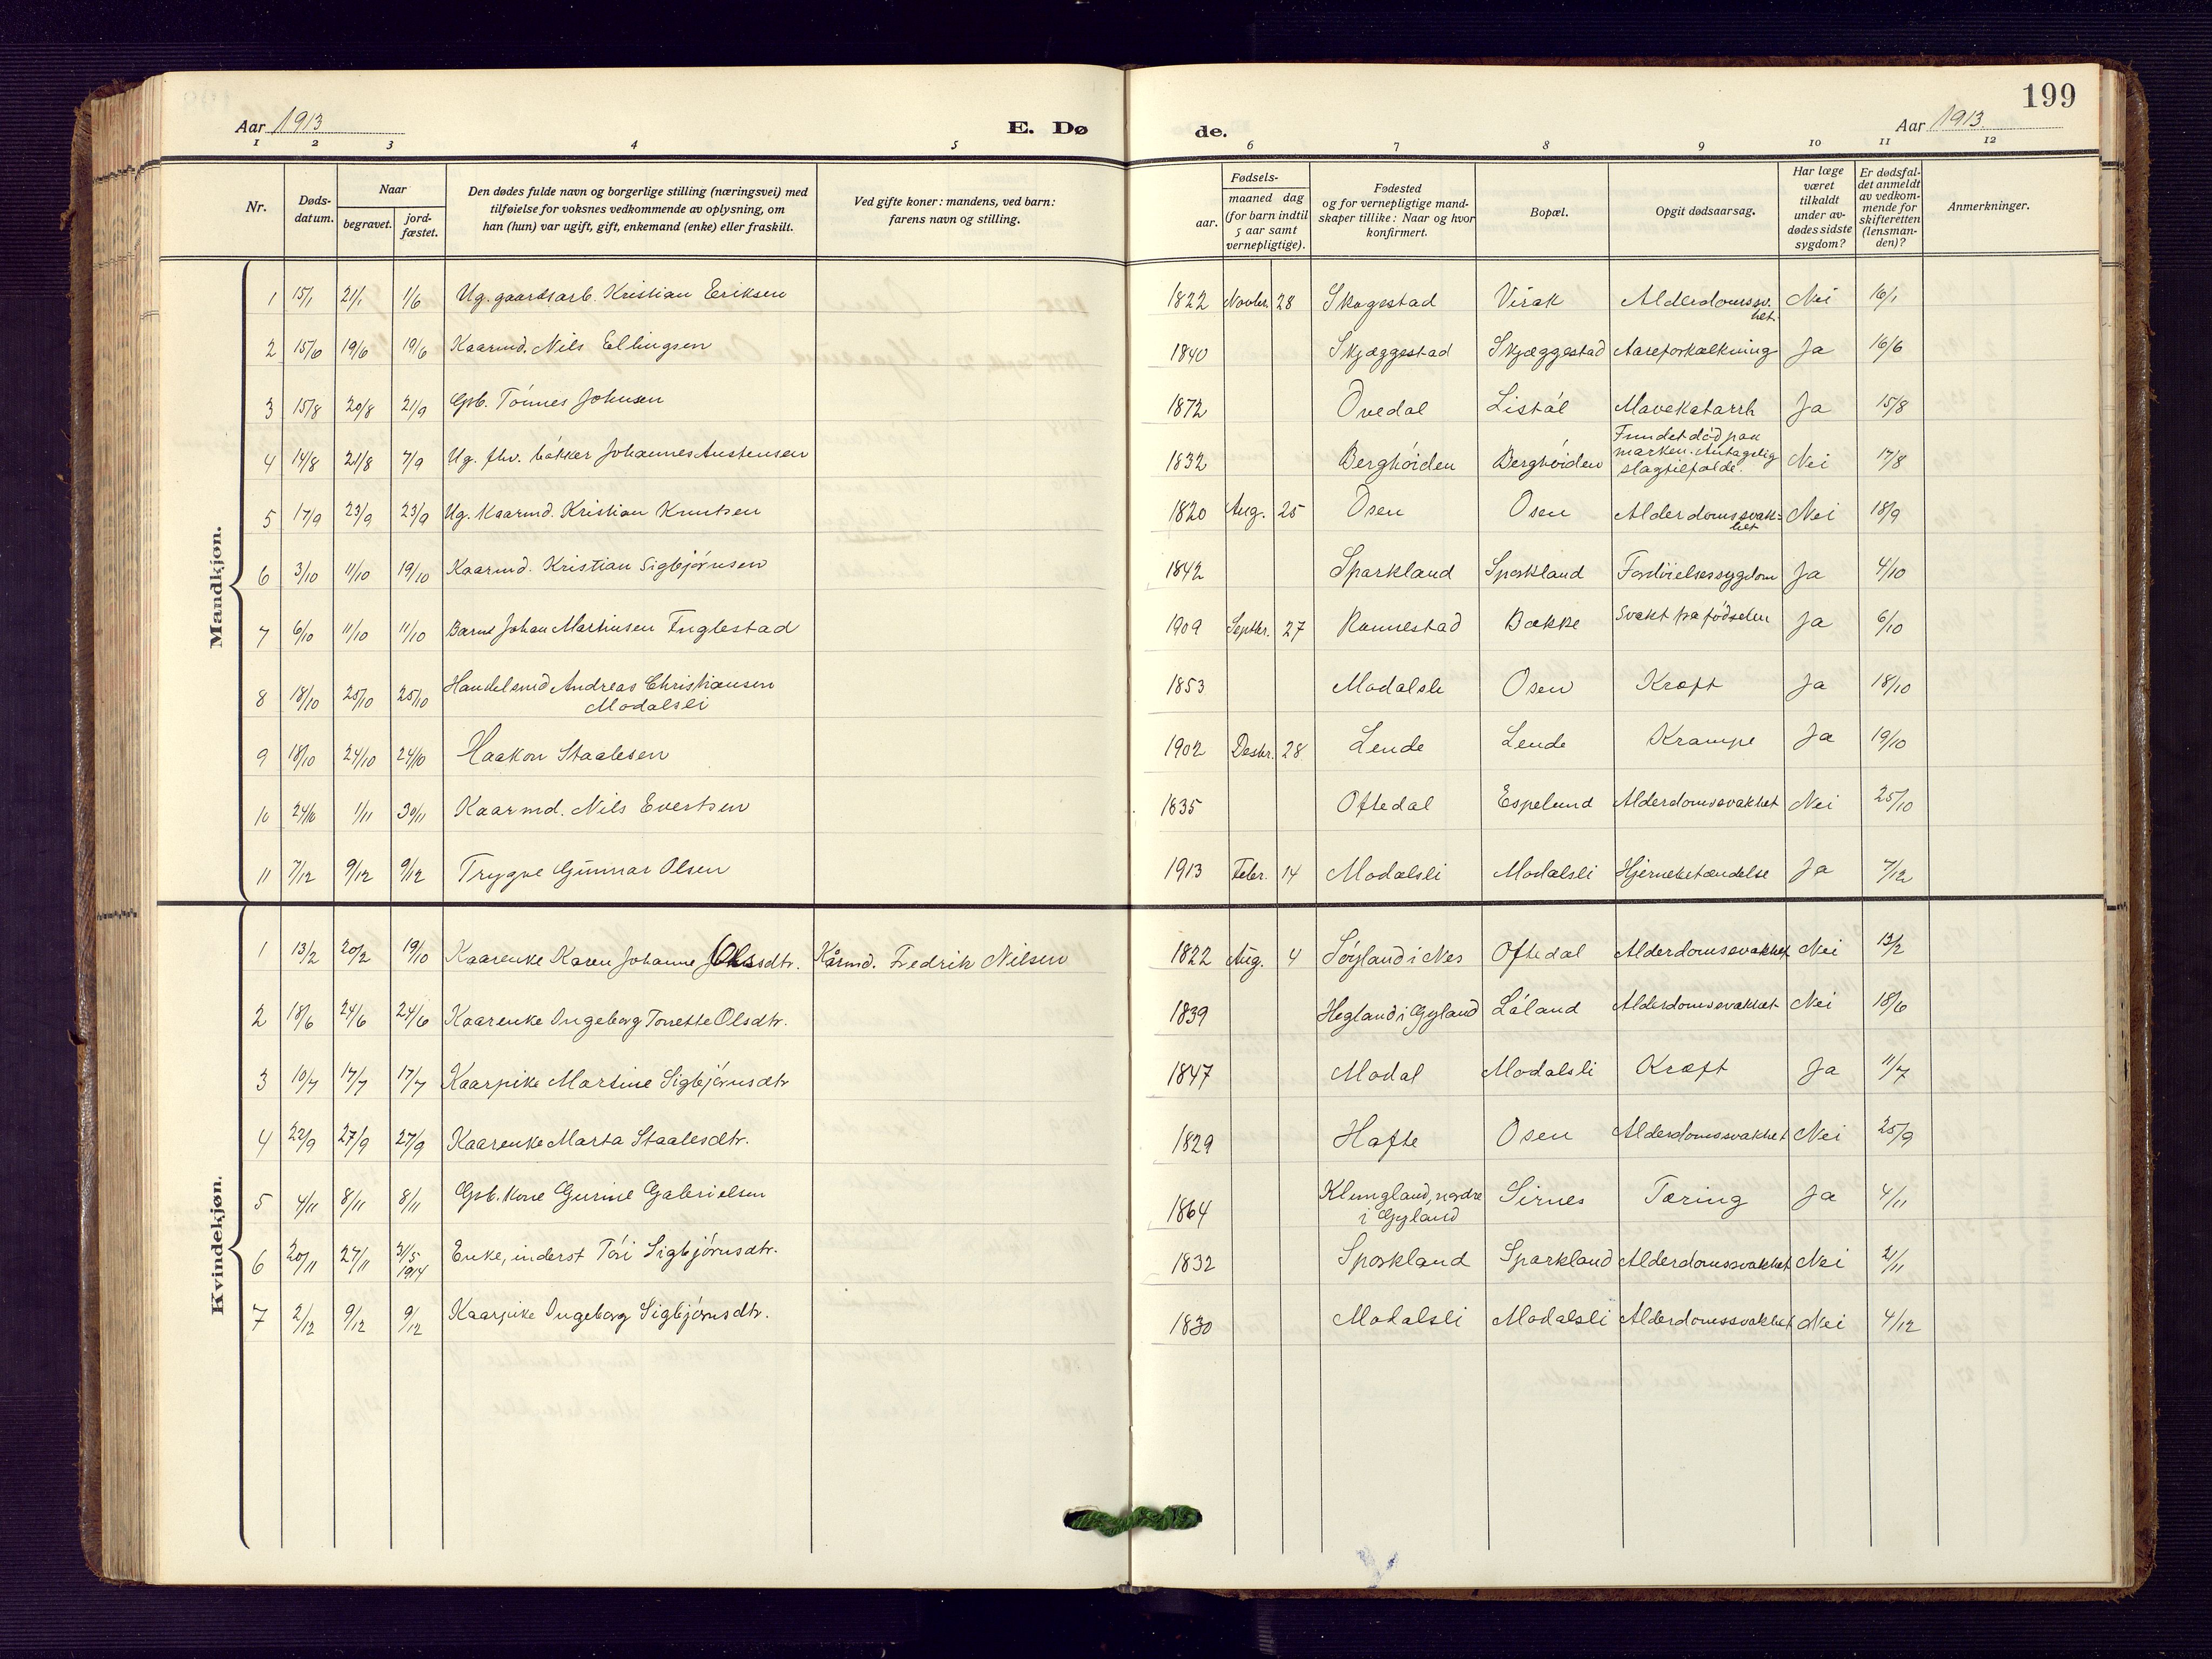 199
Aar 1913
E. Dø
de.
Aar 1913
1 2 3 4 5 6 7 8 9 10 11 12
Nr.
Døds-
datum.
Naar
begravet.
jord-
fæstet.
Den dødes fulde navn og borgerlige stilling (næringsvei) med
tilføielse for voksnes vedkommende av oplysning, om
han (hun) var ugift, gift, enkemand (enke) eller fraskilt.
Ved gifte koner: mandens, ved barn:
farens navn og stilling.
Fødsels-
aar.
maaned dag
(for barn indtil
5 aar samt
vernepligtige).
Fødested
og for vernepligtige mand-
skaper tillike: Naar og hvor
konfirmert.
Bopæl.
Opgit dødsaarsag.
Har læge
været
tilkaldt
under av-
dødes sidste
sygdom?
Er dødsfal-
det anmeldt
av vedkom-
mende for
skifteretten
(lensman-
den)?
Anmerkninger.
Mandkjøn.
1 15/1 21/1 1/6 Ug. gaardsarb. Kristian Eriksen 1822 Novbr. 28 Skogestad Virak Alderdomssv.het Nei 16/1
2 15/6 19/6 19/6 Kaarmd. Nils Ellingsen 1840 Skjæggestad Skjæggestad Aareforkalkning Ja 16/6
3 15/8 20/8 21/9 Gsb. Tónnes Johnsen 1872 Ovedal Listól Mavekatarrh Ja 15/8
4 14/8 21/8 7/9 Ug. fhv. bókker Johannes Austensen 1832 Berghóiden Berghóiden Fundet død paa
marken. Antagelig
slagtilfælde. Nei 17/8
5 17/9 23/9 23/9 Ug. Kaarmd. Kristian Knutsen 1820 Aug. 25 Osen Osen Alderdomssvak-
het Nei 18/9
6 3/10 11/10 19/10 Kaarmd. Kristian Sigbjórnsen 1842 Sparkland Sparkland Fordóielsessygdom Ja 4/10
7 6/10 11/10 11/10 Barnet Johan Martinsen Fuglestad 1909 Septbr. 27 Rannestad Bakke Svakt fra fódselen Ja 6/10
8 18/10 25/10 25/10 Handelsmd Andreas Christiansen
Modalsli 1853 Modalsli Osen Kræft Ja 18/10
9 18/10 24/10 24/10 Haakon Staalesen 1902 Desbr. 28 Lende Lende Krampe Ja 19/10
10 24/10 1/11 30/11 Kaarmd. Nils Evertsen 1835 Oftedal Espelund Alderdomssvakhet Nei 25/10
11 7/12 9/12 9/12 Trygve Gunnar Olsen 1913 Febr. 14 Modalsli Modalsli Hjernebetændelse Ja 7/12
Kvindekjøn.
1 13/2 20/2 19/10 Kaarenke Karen Johanne Olsdtr. Kårmd. Fredrik Nilsen 1822 Aug. 4 Sóyland i Nes Oftedal Alderdomssvakhet Nei 13/2
2 18/6 24/6 24/6 Kaarenke Ingeborg Tonette Olsdtr. 1839 Hegland i Gyland Lóland Alderdomssvakhet Nei 18/6
3 10/7 17/7 17/7 Kaarpike Martine Sigbjórnsdtr 1847 Modal Modalsli Kræft Ja 11/7
4 22/9 27/9 27/9 Kaarenke Marta Staalesdtr. 1829 Hafte Osen Alderdomssvakhet Nei 25/9
5 4/11 8/11 8/11 Gsb. kone Gurine Gabrielsen 1864 Klungland, nordre
i Gyland Sirnes Tæring Ja 4/11
6 20/11 27/11 31/5
1914 Enke, inderst Tóri Sigbjórnsdtr. 1832 Sparkland Sparkland Alderdomssvakhet Nei 2/11
7 2/12 9/12 9/12 Kaarpike Ingeborg Sigbjórnsdtr. 1830 Modalsli Modalsli Alderdomssvakhet Nei 4/12